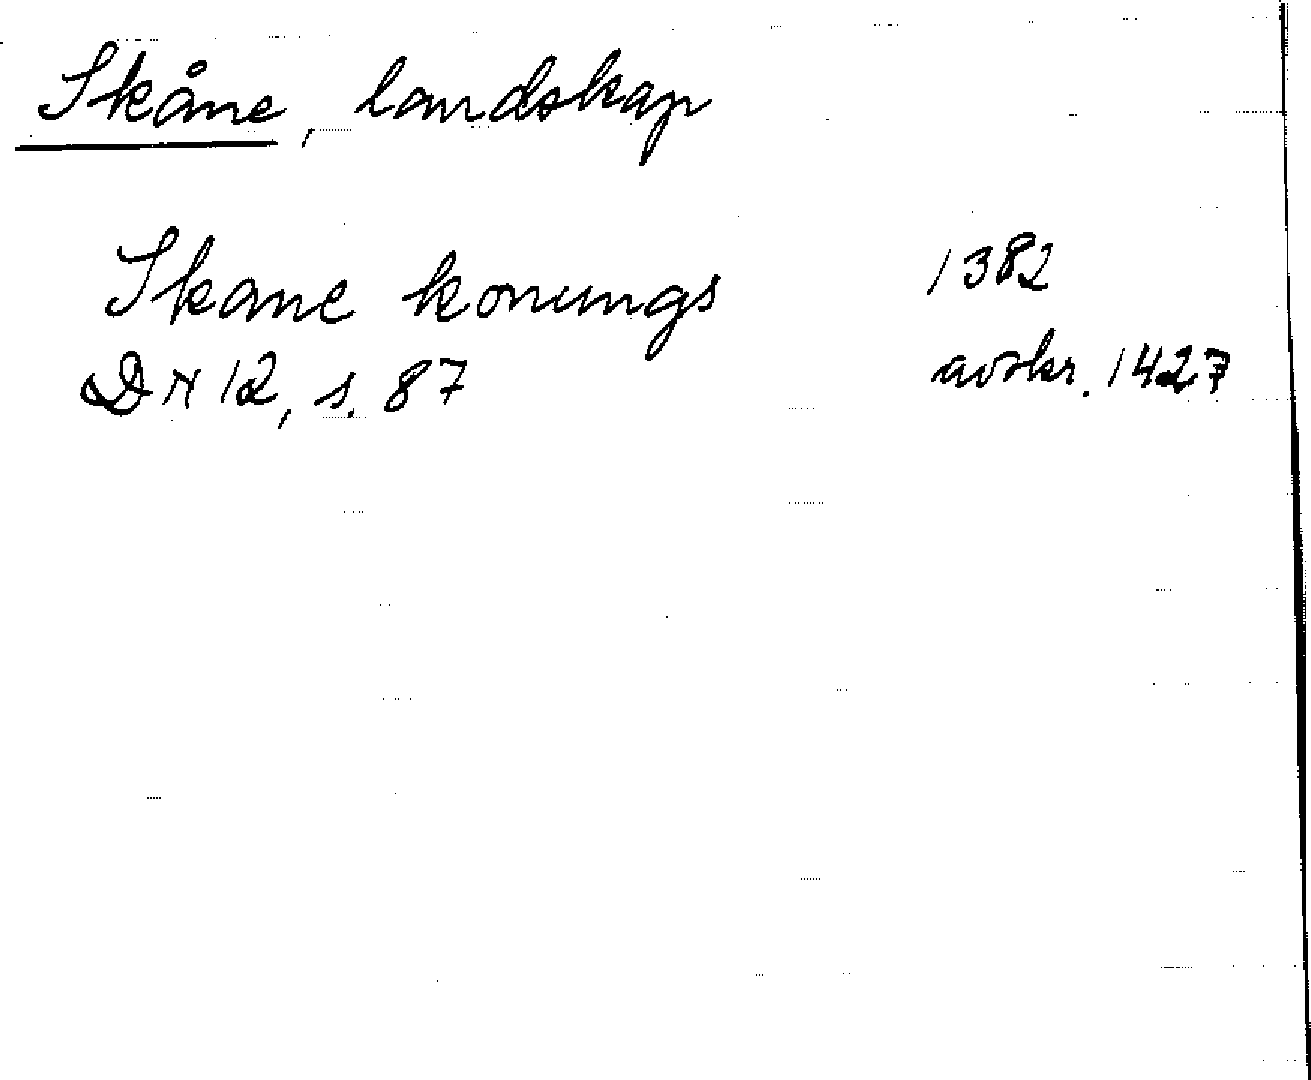 Skåne, landskap
Skane konungs 1382
DN 12, s. 87 avskr. 1427